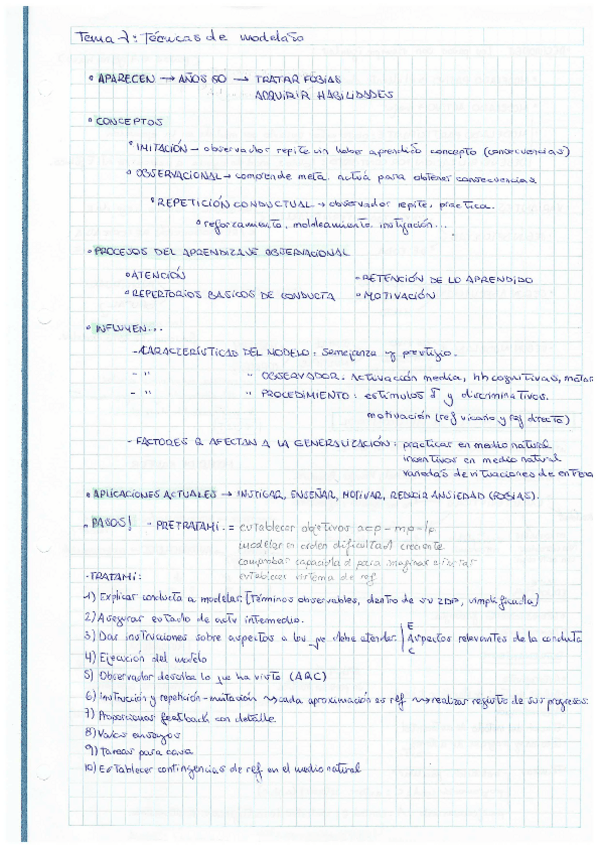 Tema 7: Técnicas de modelado
• APARECEN → AÑOS 60 → TRATAR FOBIAS
ADQUIRIR HABILIDADES
• CONCEPTOS
• IMITACIÓN – observador repite sin haber aprendido concepto (consecuencias)
• OBSERVACIONAL → comprende meta. actúa para obtener consecuencias
• REPETICIÓN CONDUCTUAL → observador repite, practica.
• reforzamiento, moldeamiento, instigación...
• PROCESOS DEL APRENDIZAJE OBSERVACIONAL
• ATENCIÓN
- RETENCIÓN DE LO APRENDIDO
• REPERTORIOS BASICOS DE CONDUCTA
• MOTIVACIÓN
• INFLUYEN...
- CARACTERÍSTICAS DEL MODELO: semejanza y prestigio.
- " " OBSERVADOR. Activación media, hh cognitivas, motor
- " " PROCEDIMIENTO: estímulos δ y discriminativos.
motivación (ref vicario y ref directo)
- FACTORES Q AFECTAN A LA GENERALIZACIÓN: practicar en medio natural
incentivos en medio natural
variadas de situaciones de entrena
• APLICACIONES ACTUALES → INSTIGAR, ENSEÑAR, MOTIVAR, REDUCIR ANSIEDAD (FOBIAS).
• PASOS! - PRETRATAMI. = establecer objetivos a cp - mp - lp
modelar en orden dificultad creciente
comprobar capacidad para imaginar o imitar
establecer sistema de ref
- TRATAMI:
1) Explicar conducta a modelar. [Términos observables, dentro de su ZDP, simplificada]
2) Asegurar estado de activ intermedio.
3) Dar instrucciones sobre aspectos a los que debe atender. | E
Aspectos relevantes de la conducta
C
4) Ejecución del modelo
5) Observador describe lo que ha visto (ARC)
6) Instrucción y repetición - imitación ⇝ cada aproximación es ref ⇝ realizar registro de sus progresos.
7) Proporcionar feedback con detalle.
8) Varios ensayos
9) Tareas para casa
10) Establecer contingencias de ref en el medio natural